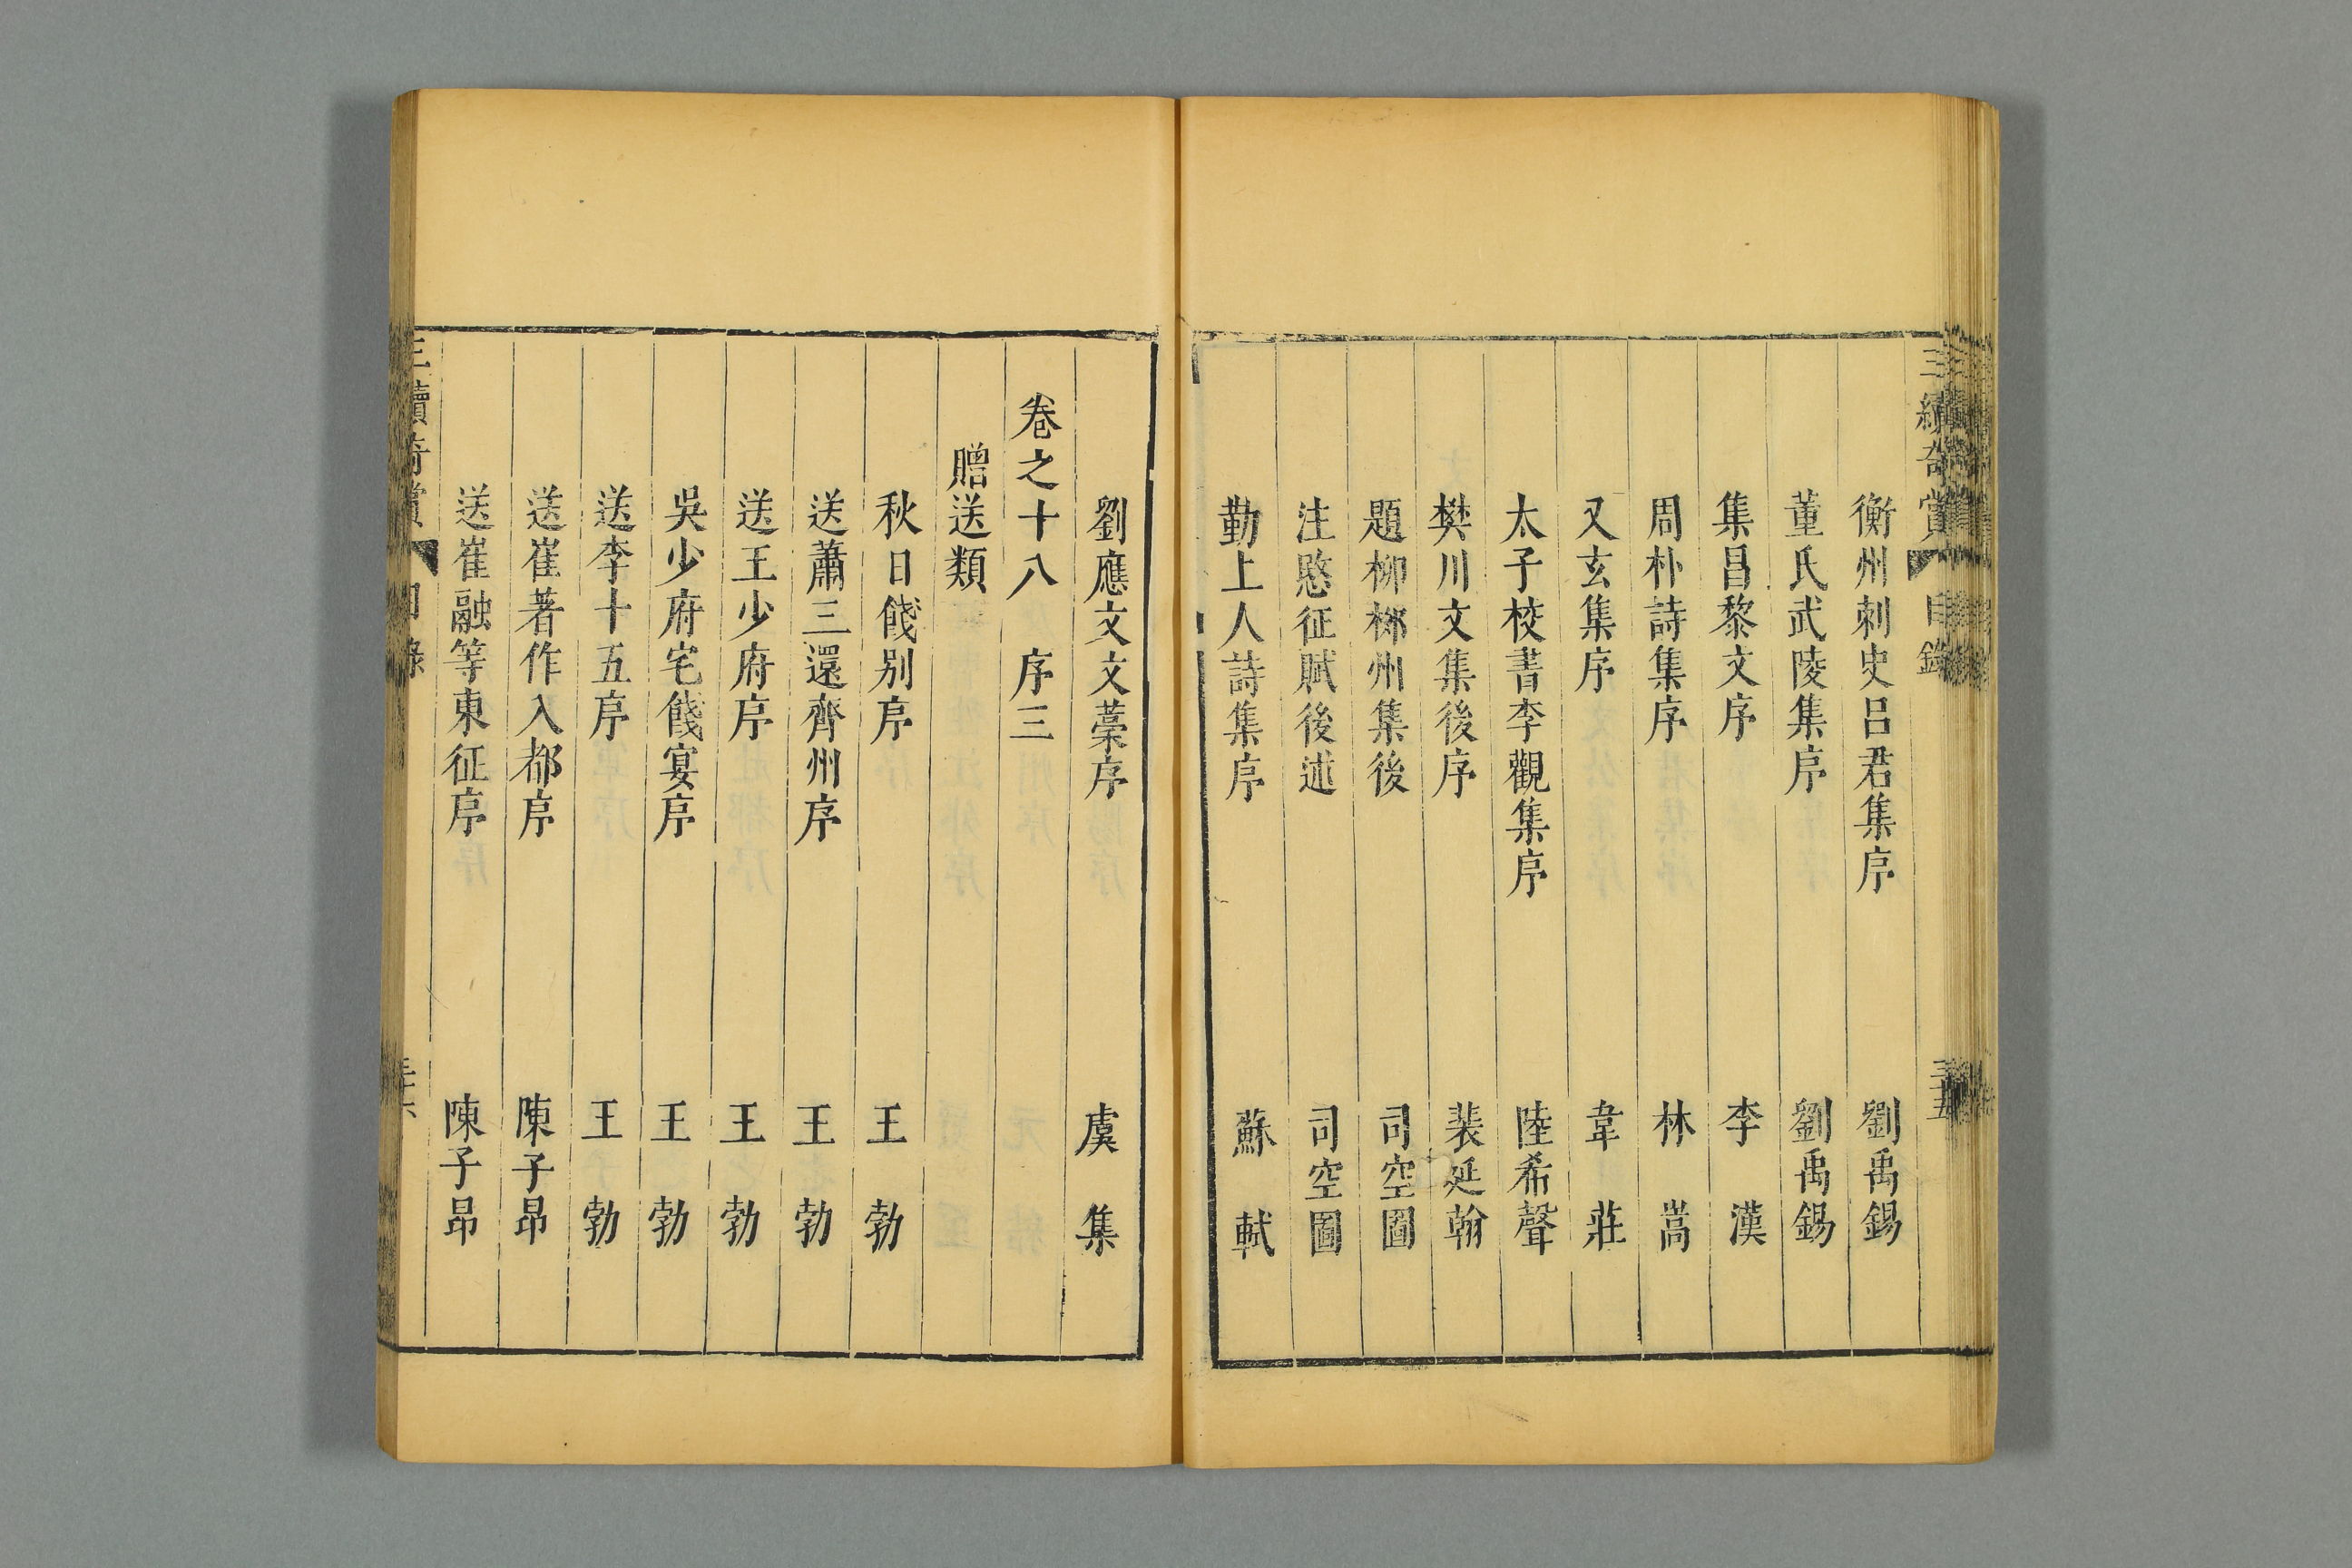 三續奇賞 目錄 三十五
衡州刺史呂君集序 劉禹錫
董氏武陵集序 劉禹錫
集昌黎文序 李漢
周朴詩集序 林嵩
又玄集序 韋莊
太子校書李觀集序 陸希聲
樊川文集後序 裴延翰
題柳柳州集後 司空圖
注愍征賦後述 司空圖
勤上人詩集序 蘇軾
劉應文文藁序 虞集
卷之十八 序三
贈送類
秋日餞别序 王勃
送蕭三還齊州序 王勃
送王少府序 王勃
吳少府宅餞宴序 王勃
送李十五序 王勃
送崔著作入都序 陳子昂
送崔融等東征序 陳子昂
三續奇賞 目錄